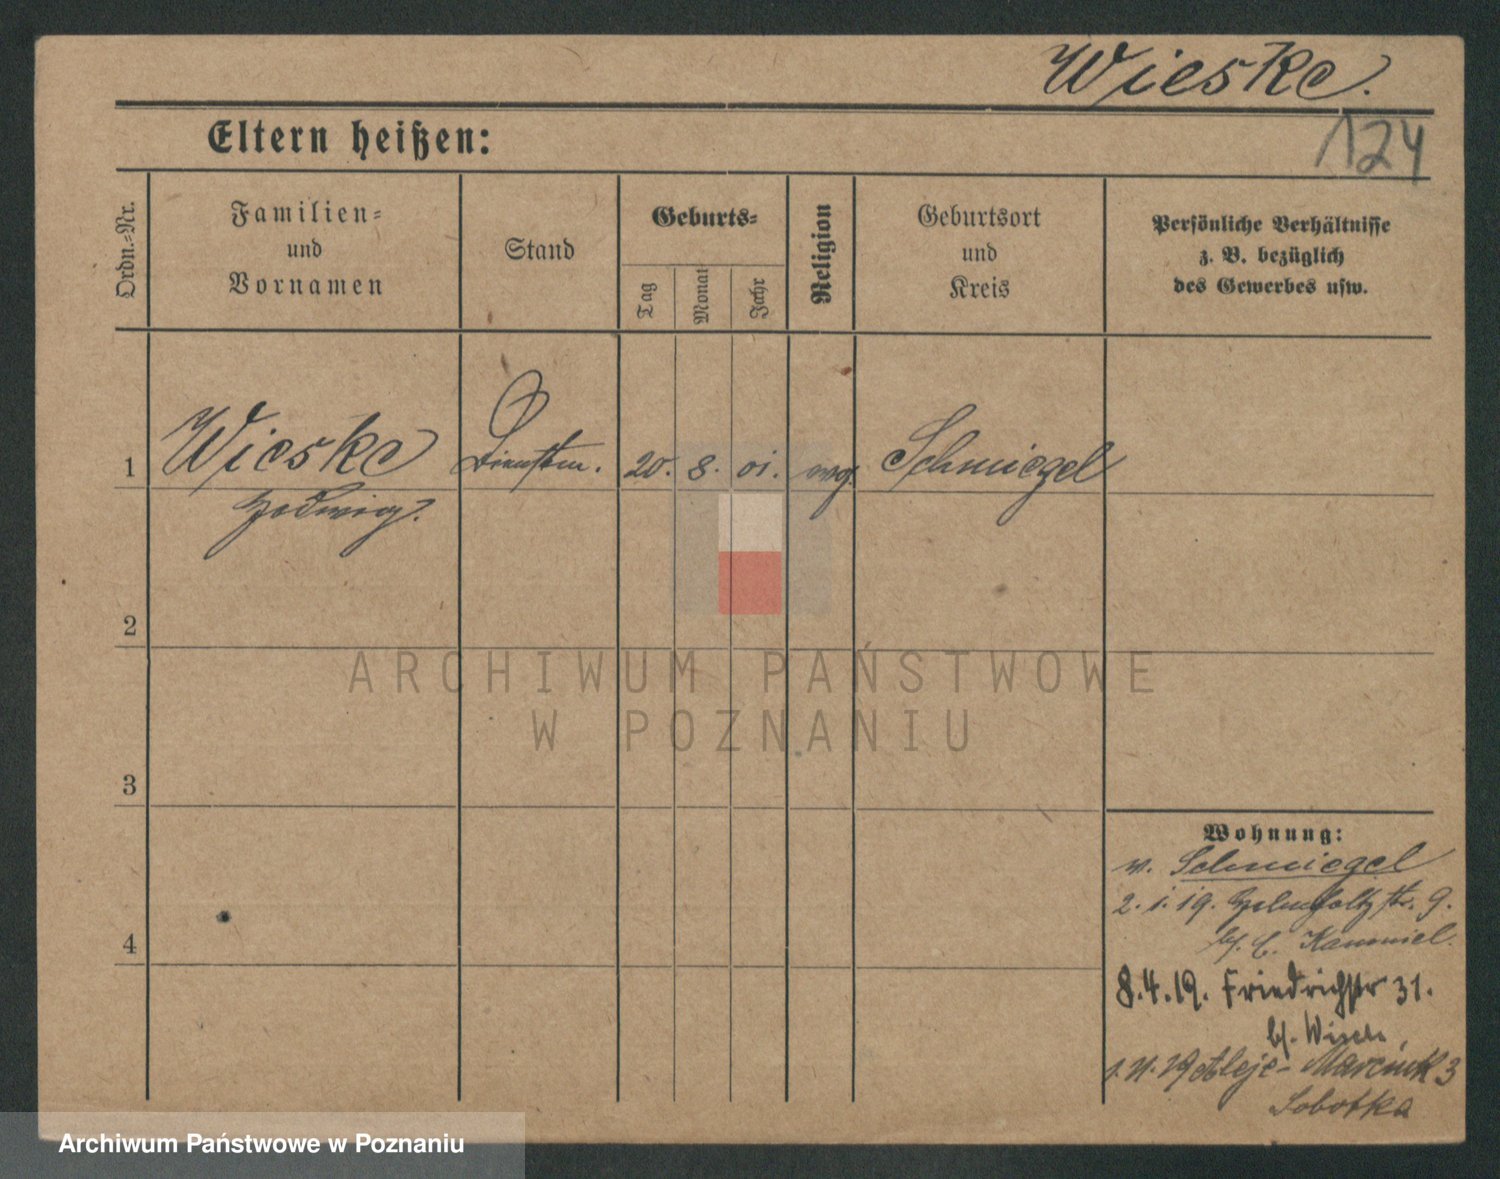 Wieske.
124
Eltern heißen:
Ordn.=Nr.
Familien=
und
Vornamen
Stand
Geburts=
Tag
Monat
Jahr
Religion
Geburtsort
und
Kreis
Persönliche Verhältnisse
z. B. bezüglich
des Gewerbes usw.
1 Wieske Dienstm. 20. 8. 01. evg. Schmiegel
Hedwig.
2
3
4
Wohnung:
v. Schmiegel
2. 1. 19. Helmholtzstr. 9.
bf. C. Kammiel.
8.4.19. Friedrichstr 31.
bf.
Aleje- Marcink 3
Sobotka
ARCHIWUM PAŃSTWOWE
W POZNANIU
Archiwum Państwowe w Poznaniu